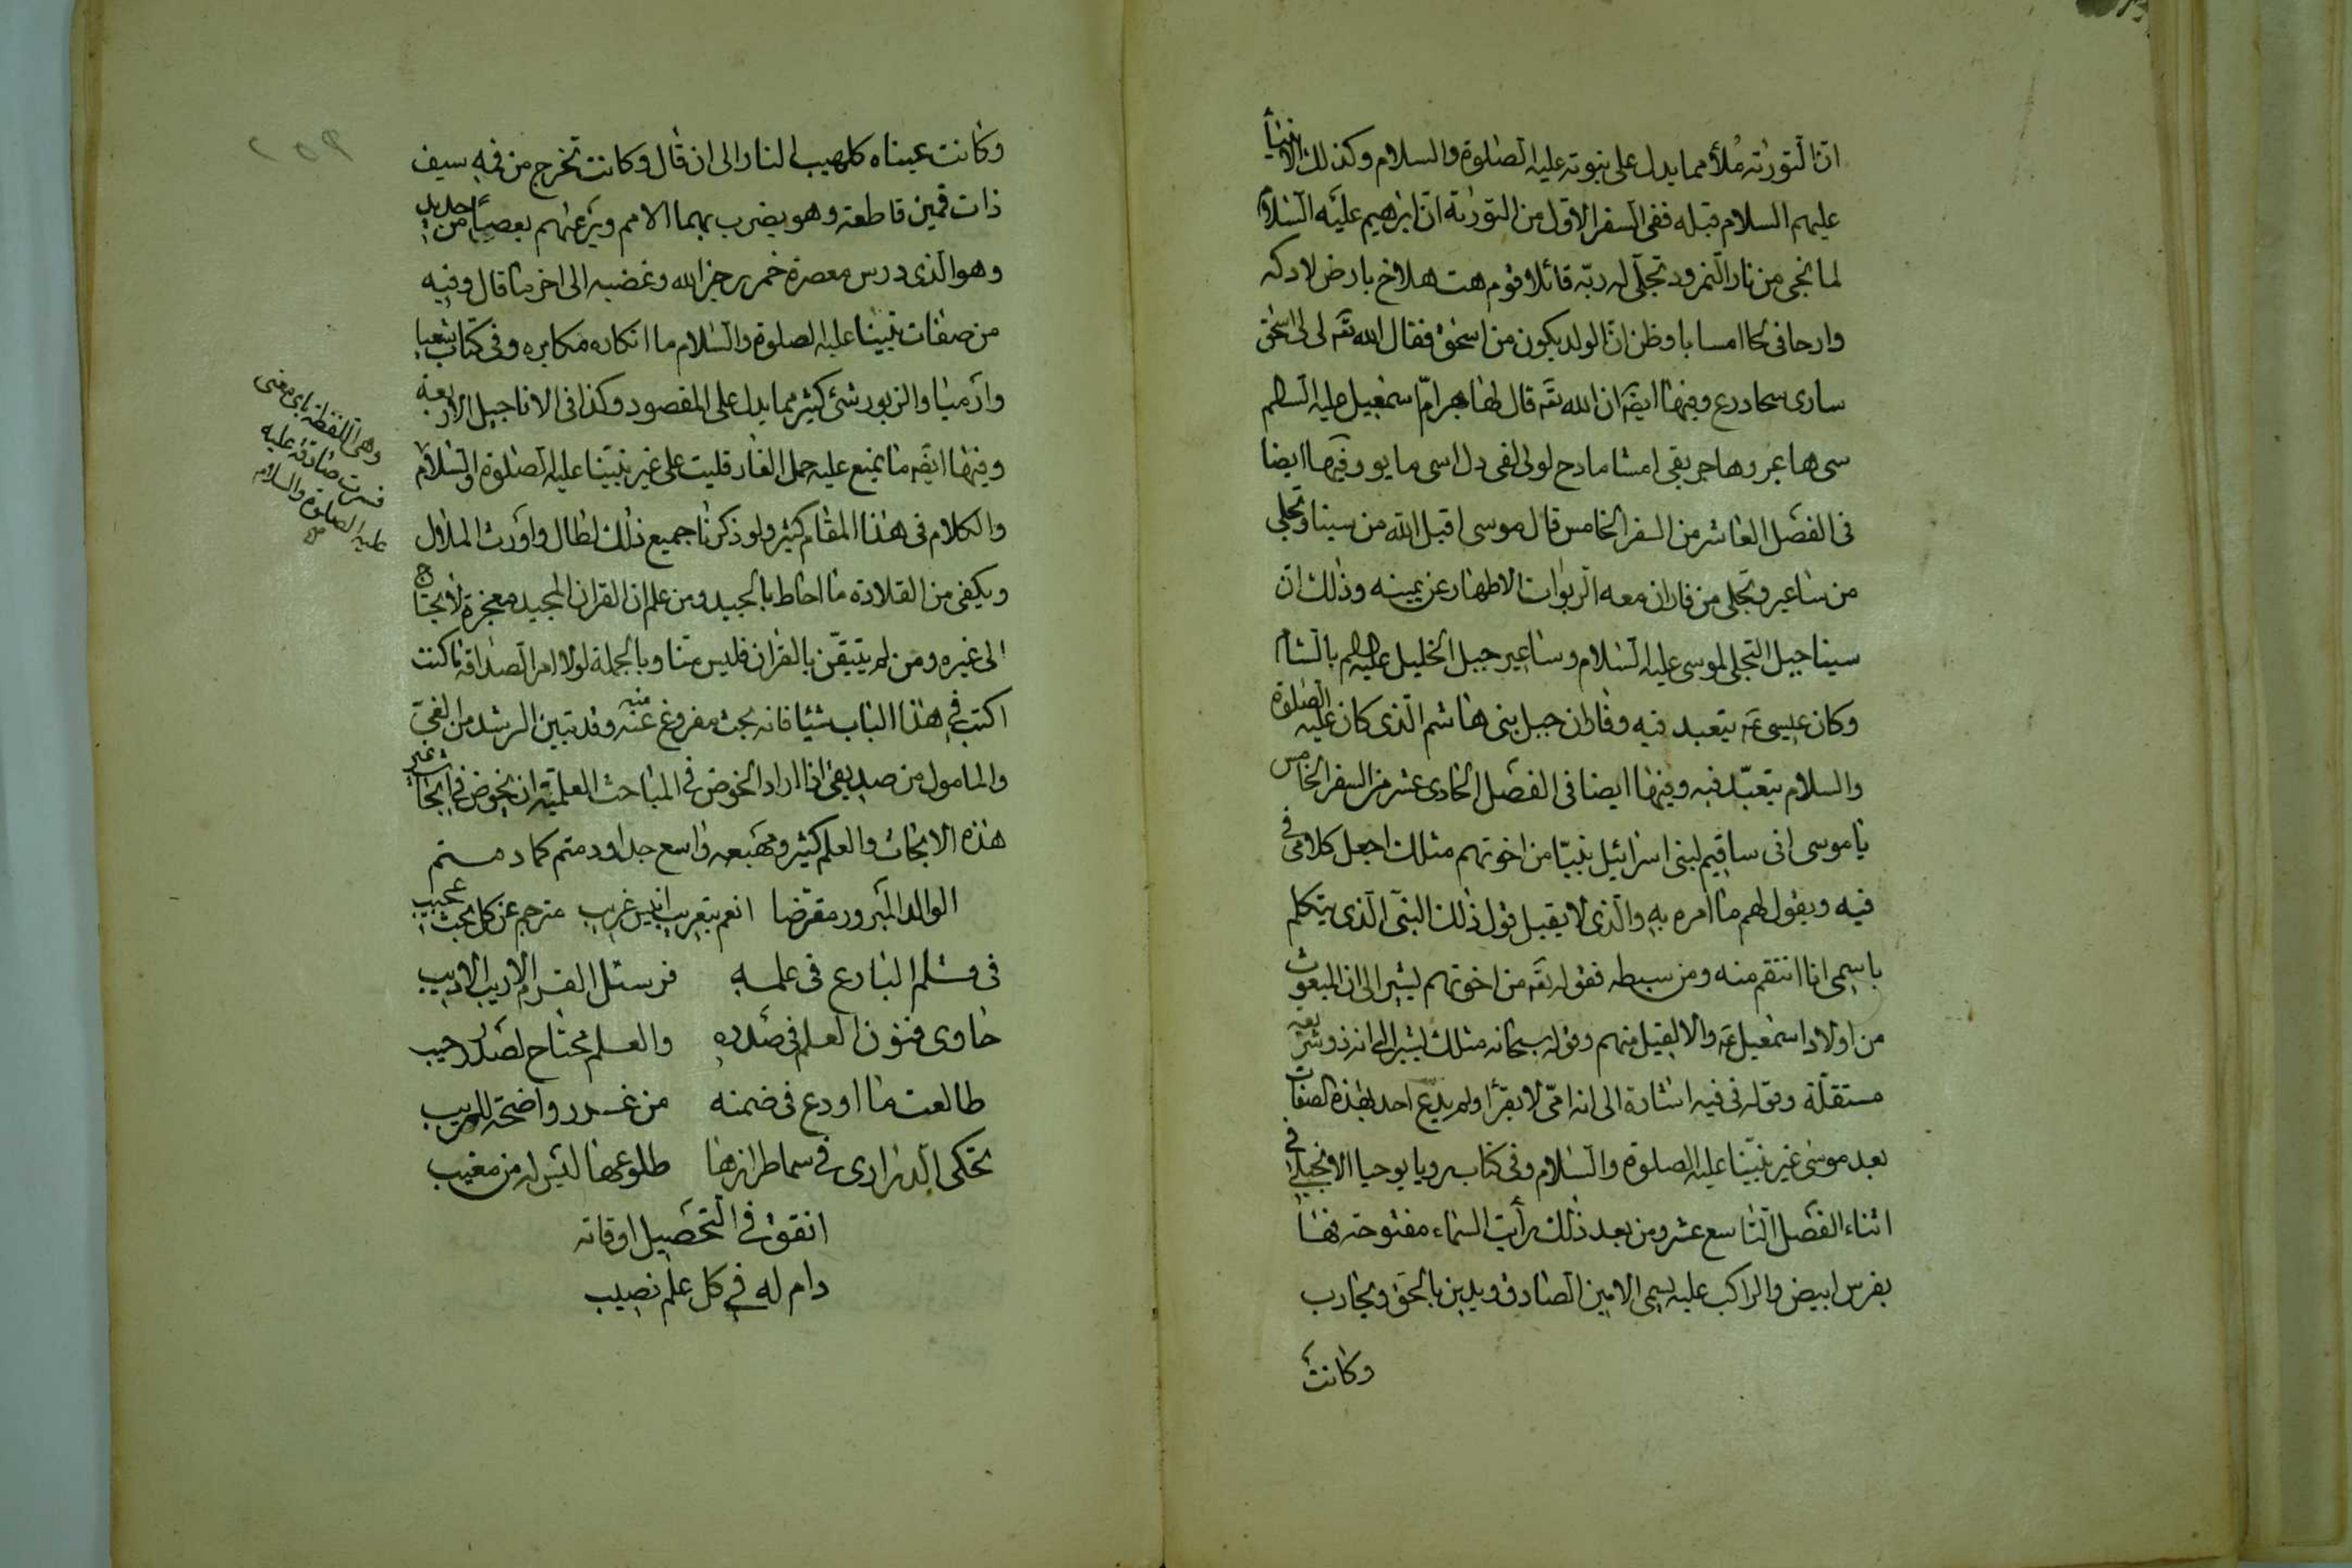 ان التورته ملأ مما يدل على نبوته عليه الصلوة والسلام وكذلك الانبيأ
عليهم السلام قبله ففى السفر الاول من التورتة ان ابرهيم عليه السلام
لما نجى من نار النمرود تجلى له ربه قائلا قوم هت هلاخ بارض لادكه
وارحافى كاامسا باوظن ان الولد يكون من اسحق فقال الله تع لى لى اسحق
سارى سحادرع وفيها ايضه ان الله تع قال لهاجر ام اسمعيل عليه السلم
سى هاعر وهاجر بقى امشا مادح لولى الفى دل اسى مايو وفيها ايضا
فى الفصل العاشر من السفر الخامس قال موسى اقبل الله من سينا وتجلى
من ساعير وتجلى من فاران معه الربوات الاطهار عن يمينه وذلك ان
سينا جبل التجلى لموسى عليه السلام وساعير جبل الخليل عليهم بالشام
وكان عيسى ع يتعبد فيه وفاران جبل بنى هاشم الذى كان عليه الصلوة
والسلام يتعبد فيه وفيها ايضا فى الفصل الحادى عشر من السفر الخامس
يا موسى انى ساقيم لبنى اسرائيل نبيا من اخوتهم مثلك اجعل كلامى فى
فيه ويقول لهم ما امره به والذى لا يقبل قول ذلك النبى الذى يتكلم
باسمى انا انتقم منه ومن سبطه فقوله تع من اخوتهم يشير الى ان المبعوث
من اولاد اسمعيل ع والا لقيل منهم وقوله سبحانه مثلك يشير الى انه ذو شريعه
مستقلة وقوله فى فيه اشارة الى انه امى لا يقرأ ولم يدع احد بهذه الصفات
بعد موسى غير نبينا عليه الصلوة والسلام وفى كتاب رويا يوحيا الانجيلى فى
اثناء الفصل التاسع عشر ومن بعد ذلك رأيت السماء مفتوحة فها
بفرس ابيض والراكب عليه يسمى الامين الصادق ويدين بالحق ويحارب
وكانت
وكانت عيناه كلهيب النار الى ان قال وكانت تخرج من فمه سيف
ذات فمين قاطعة وهو يضرب بهما الامم ويرعهم بعصيا من حديد
وهو الذى درس معصرة خمر رجز الله وغضبه الى اخر ما قال وفيه
من صفات نبينا عليه الصلوة والسلام ما انكاره مكابره وفى كتاب شعيا
وارميا والزبور شئ كثير مما يدل على المقصود وكذا فى الاناجيل الاربعة
وفيها ايضه ما يمنع عليه حمل الفارقليت على غير نبينا عليه الصلوة والسلام
والكلام فى هذا المقام كثير ولو ذكرنا جميع ذلك لطال واورث الملال
ويكفى من القلادة ما احاط بالجيد ومن علم ان القران المجيد معجزة لا يحتاج
الى غيره ومن لم يتيقن بالقران فليس منا وبالجملة لولا امر الصداقة ما كنت
اكتب فى هذا الباب شيئا فانه بحث مفروغ عنه منه وقد تبين الرشد من الغى
والمامول من صديقى اذا اراد الخوض فى المباحث العلمية ان يخوض فى ابحاث غير
هذه الابحاث والعلم كثير ومهيعه واسع جدا ودمتم كما دمتم
الوالد المبرور مقرضا انعم بتعريب انيس غريب مترجم عن كل بحث عجيب
فى مسلم البارع فى علمه فرستل القرم الاريب الاديب
حاوى فنون العلم فى صدره والعلم محتاج لصدر رحيب
طالعت ما اودع فى ضمنه من غرر واضحة للبيب
تحكى الدرارى فى سما طرازها طلوعها ليس له من مغيب
انفق فى التحصيل اوقاته
دام له فى كل علم نصيب
وهى اللفظة باى معنى
فسرت صادقة عليه
عليه الصلوة والسلام